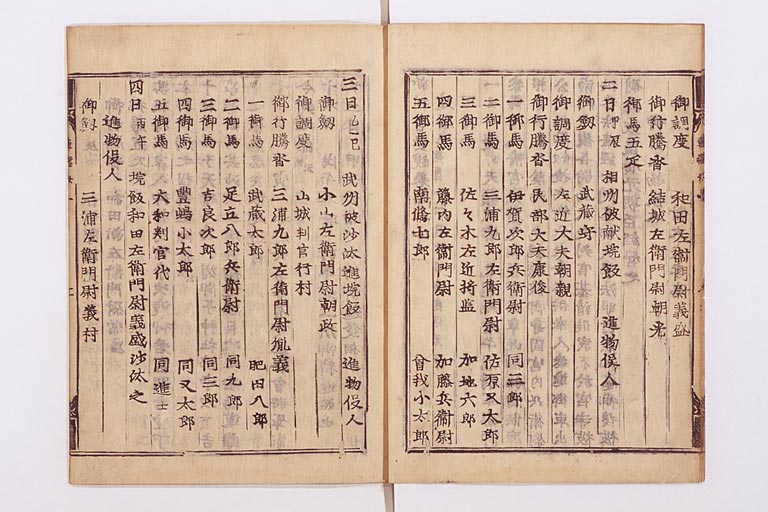 御調度 和田左衛門尉義盛
御行騰沓 結城左衛門尉朝光
御馬五疋
二日 相州被献垸飯 進物役人
御釼 武蔵守
御調度 左近大夫朝親
御行騰沓 民部大夫康後
一御馬 伊賀次郎兵衛尉 同三郎
二御馬 三浦九郎左衛門尉 佐原又太郎
三御馬 佐々木左近将監 加地六郎
四御馬 藤内左衛門尉 加藤兵衛尉
五御馬 七郎 曾我小太郎
三日 武州被沙汰進垸飯 進物役人
御釼 小山左衛門尉朝政
御調度 山城判官行村
御行騰沓 三浦九郎左衛門尉胤義
一御馬 武蔵太郎 肥田八郎
二御馬 足立八郎兵衛尉 同九郎
三御馬 吉良次郎 同三郎
四御馬 豊嶋小太郎 同又太郎
五御馬 六和判官代 同進士
四日 丙午 垸飯和田左衛門尉義盛沙汰之
進物役人
御釼 三浦左衛門尉義村